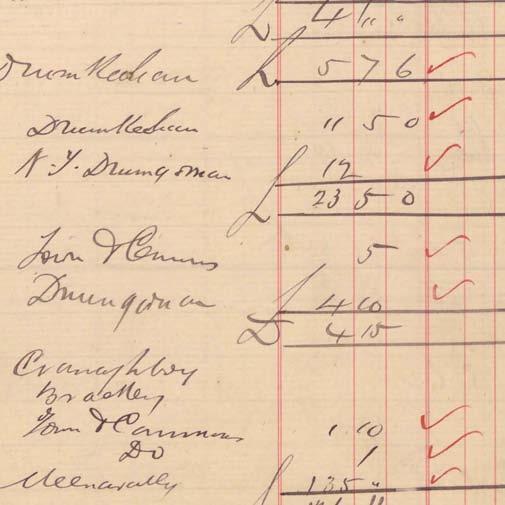 £ 4 " "
Drumkeelan £ 5 7 6
Drumkeelan 11 5 0
N. Y. Drumgorman 12
£ 23 5 0
Town & Commons 5
Drumgorman 4 10
£ 4 15
Cranaghboy
Bradley
Town & Commons 1 10
Do 1
Meenavally 135 "
£